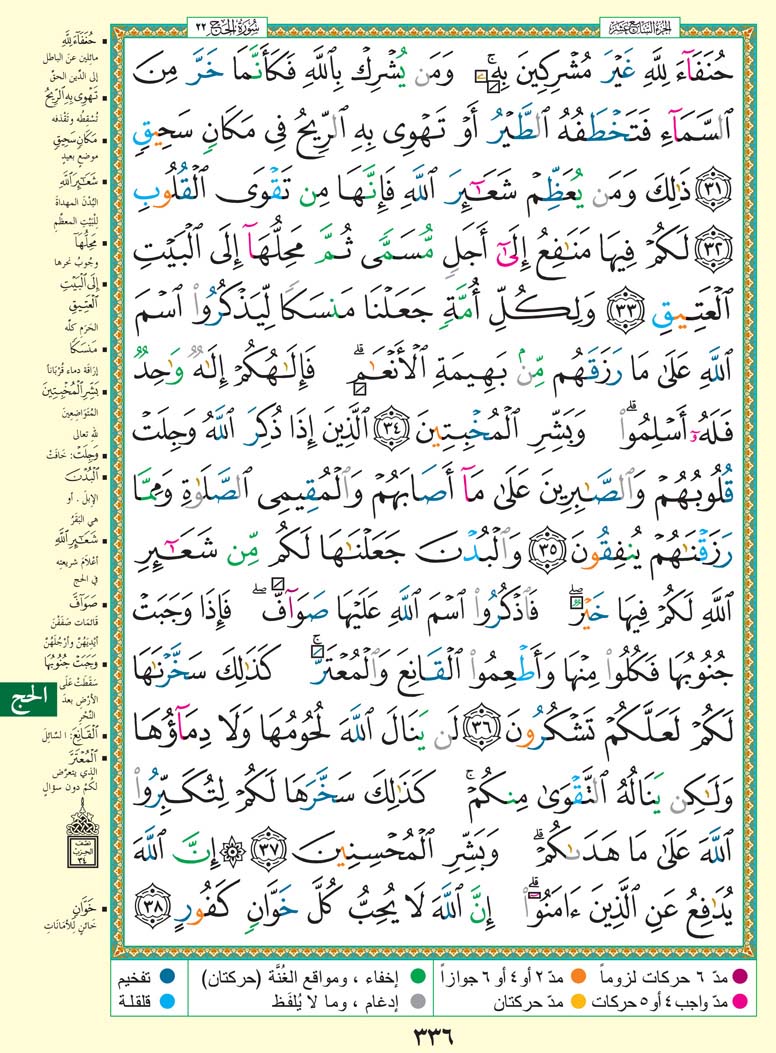 الجزء السابع عشر
سورة الحج ٢٢
حُنَفَآءَ لِلَّهِ غَيْرَ مُشْرِكِينَ بِهِۦۚ وَمَن يُشْرِكْ بِٱللَّهِ فَكَأَنَّمَا خَرَّ مِنَ
ٱلسَّمَآءِ فَتَخْطَفُهُ ٱلطَّيْرُ أَوْ تَهْوِى بِهِ ٱلرِّيحُ فِى مَكَانٍ سَحِيقٍ
٣١ ذَٰلِكَ وَمَن يُعَظِّمْ شَعَٰٓئِرَ ٱللَّهِ فَإِنَّهَا مِن تَقْوَى ٱلْقُلُوبِ
٣٢ لَكُمْ فِيهَا مَنَٰفِعُ إِلَىٰٓ أَجَلٍ مُّسَمًّى ثُمَّ مَحِلُّهَآ إِلَى ٱلْبَيْتِ
ٱلْعَتِيقِ ٣٣ وَلِكُلِّ أُمَّةٍ جَعَلْنَا مَنسَكًا لِّيَذْكُرُوا۟ ٱسْمَ
ٱللَّهِ عَلَىٰ مَا رَزَقَهُم مِّنۢ بَهِيمَةِ ٱلْأَنْعَٰمِۗ فَإِلَٰهُكُمْ إِلَٰهٌ وَٰحِدٌ
فَلَهُۥٓ أَسْلِمُوا۟ۗ وَبَشِّرِ ٱلْمُخْبِتِينَ ٣٤ ٱلَّذِينَ إِذَا ذُكِرَ ٱللَّهُ وَجِلَتْ
قُلُوبُهُمْ وَٱلصَّٰبِرِينَ عَلَىٰ مَآ أَصَابَهُمْ وَٱلْمُقِيمِى ٱلصَّلَوٰةِ وَمِمَّا
رَزَقْنَٰهُمْ يُنفِقُونَ ٣٥ وَٱلْبُدْنَ جَعَلْنَٰهَا لَكُم مِّن شَعَٰٓئِرِ
ٱللَّهِ لَكُمْ فِيهَا خَيْرٌۖ فَٱذْكُرُوا۟ ٱسْمَ ٱللَّهِ عَلَيْهَا صَوَآفَّۖ فَإِذَا وَجَبَتْ
جُنُوبُهَا فَكُلُوا۟ مِنْهَا وَأَطْعِمُوا۟ ٱلْقَانِعَ وَٱلْمُعْتَرَّۚ كَذَٰلِكَ سَخَّرْنَٰهَا
لَكُمْ لَعَلَّكُمْ تَشْكُرُونَ ٣٦ لَن يَنَالَ ٱللَّهَ لُحُومُهَا وَلَا دِمَآؤُهَا
وَلَٰكِن يَنَالُهُ ٱلتَّقْوَىٰ مِنكُمْۚ كَذَٰلِكَ سَخَّرَهَا لَكُمْ لِتُكَبِّرُوا۟
ٱللَّهَ عَلَىٰ مَا هَدَىٰكُمْۗ وَبَشِّرِ ٱلْمُحْسِنِينَ ٣٧ ۞ إِنَّ ٱللَّهَ
يُدَٰفِعُ عَنِ ٱلَّذِينَ ءَامَنُوٓا۟ۗ إِنَّ ٱللَّهَ لَا يُحِبُّ كُلَّ خَوَّانٍ كَفُورٍ ٣٨
حُنَفَآءَ لِلَّهِ
مائلين عن الباطل
إلى الدّين الحقّ
تَهْوِى بِهِ ٱلرِّيحُ
تُسْقِطُه وتَقْذفه
مَكَانٍ سَحِيقٍ
موضع بعيدٍ
شَعَٰٓئِرَ ٱللَّهِ
البُدْنَ المهداةَ
لِلْبَيْتِ المعظَّمِ
مَحِلُّهَآ
وجُوبُ نحرها
إِلَى ٱلْبَيْتِ
ٱلْعَتِيقِ
الحَرَم كلِّه
مَنسَكًا
إراقة دماء قُرْباناً
بَشِّرِ ٱلْمُخْبِتِينَ
المُتَوَاضِعِينَ
لله تعالى
وَجِلَتْ: خَافَتْ
ٱلْبُدْنَ
الإبل . أو
هي البَقَرُ
شَعَٰٓئِرِ ٱللَّهِ
أعْلَامِ شريعتِه
في الحج
صَوَآفَّ
قائمات صَفَفْنَ
أَيْدِيَهُنَّ وأَرْجُلَهُنَّ
وَجَبَتْ جُنُوبُهَا
سَقَطَتْ عَلَى
الأرْضِ بعدَ
النَّحْرِ
ٱلْقَانِعَ: السّائِلَ
ٱلْمُعْتَرَّ
الذي يتعرَّض
لكُمْ دون سؤالٍ
نصف
الحزب
٣٤
خَوَّانٍ
خائنٍ لِلأمَانَاتِ
الحج
مدّ ٦ حركات لزوماً
مدّ ٢ أو ٤ أو ٦ جوازاً
إخفاء ، ومواقع الغُنَّة (حركتان)
تفخيم
مدّ واجب ٤ أو ٥ حركات
مدّ حركتان
إدغام ، وما لا يُلفَظ
قلقلة
٣٣٦